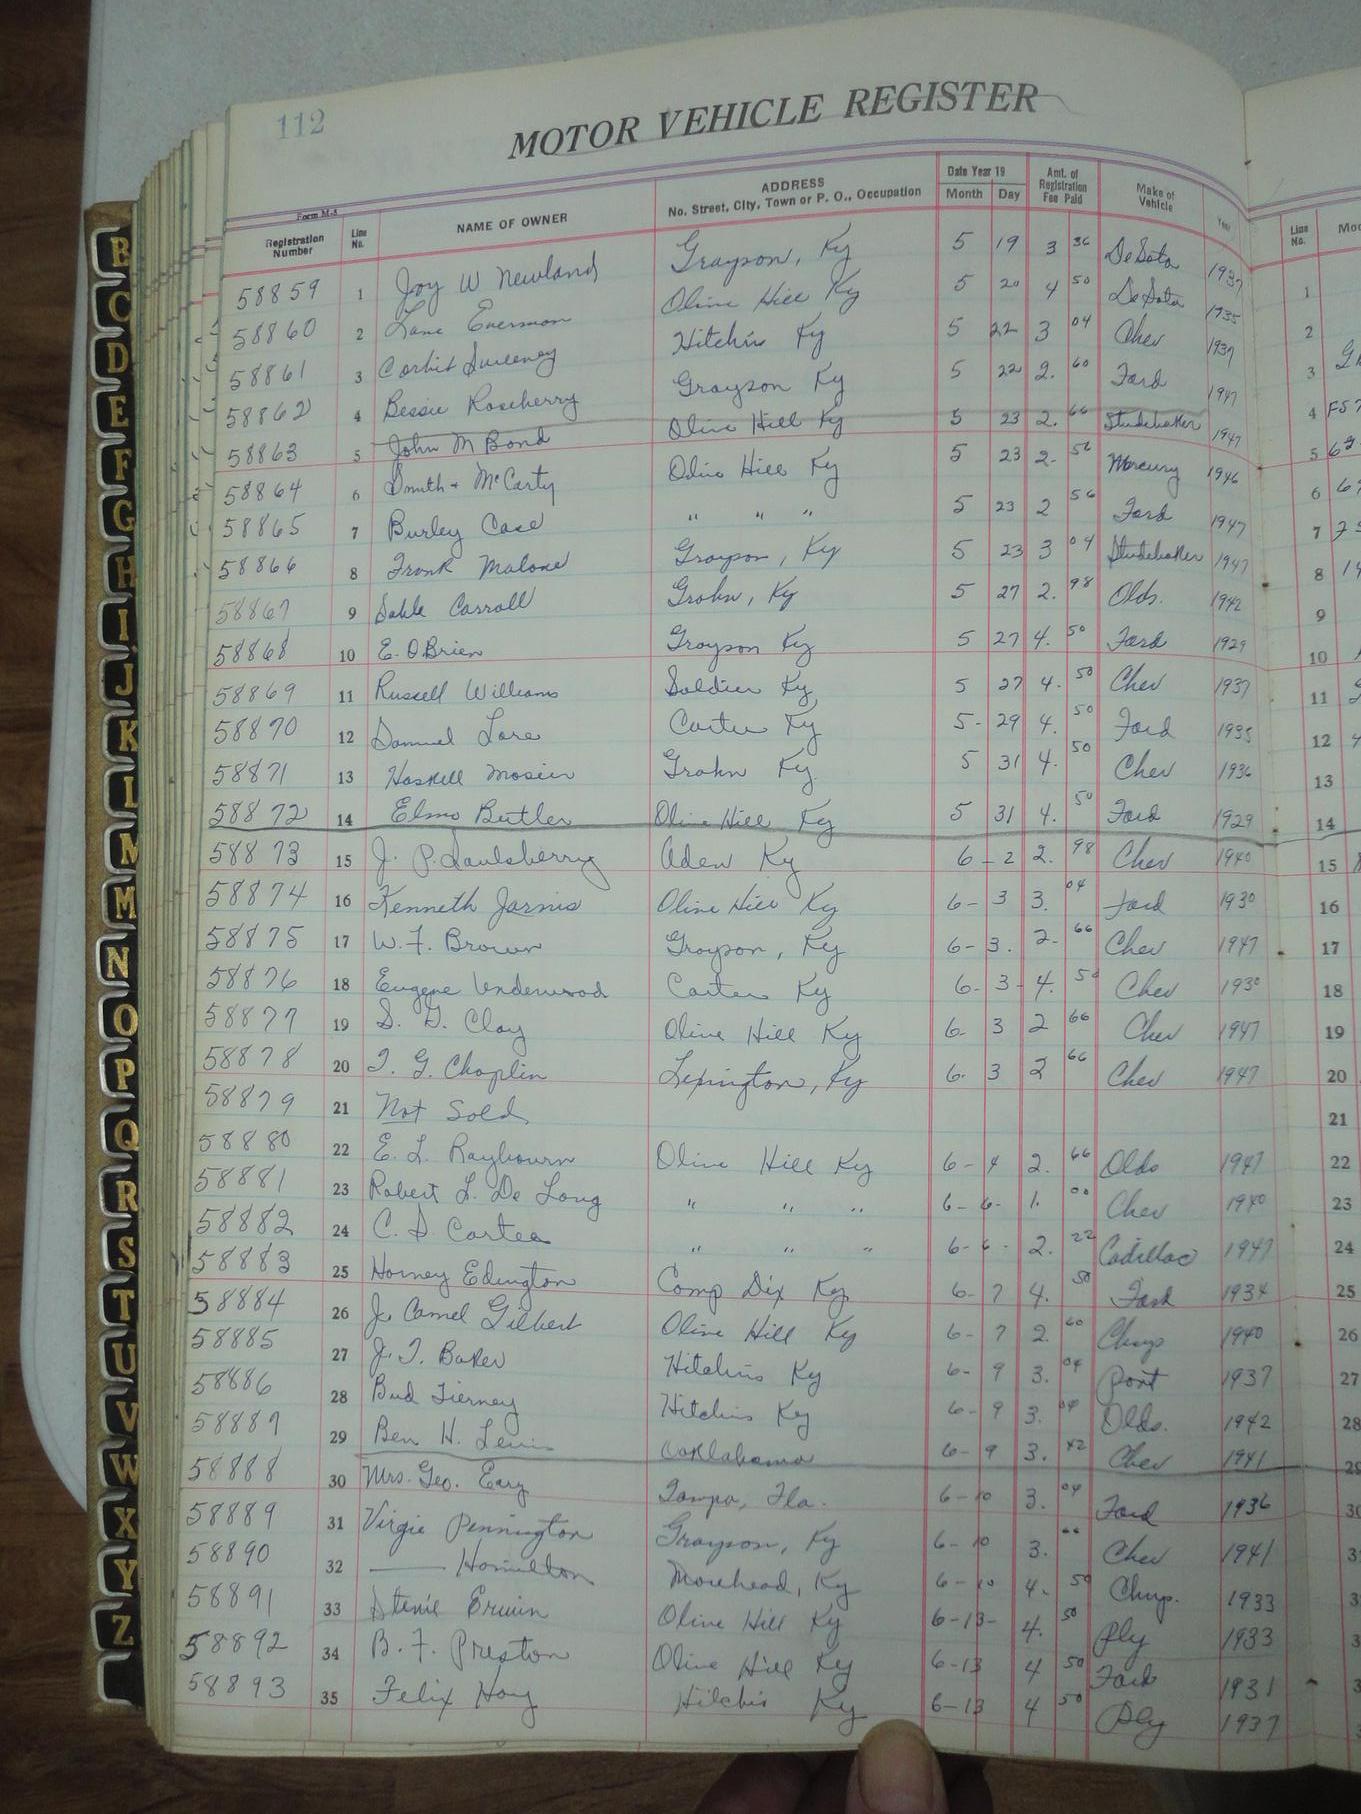 112
MOTOR VEHICLE REGISTER
Form M-5
Registration Number Line No. NAME OF OWNER ADDRESS No. Street, City, Town or P. O., Occupation Date Year 19 Month Day Amt. of Registration Fee Paid Make of Vehicle Year Line No.
58859 1 Joy W Newland Grayson, Ky 5 19 3 36 DeSoto 1937 1
58860 2 Lane Everman Olive Hill Ky 5 20 4 50 DeSoto 1935 2
58861 3 Corbit Sweeney Hitchins Ky 5 22 3 04 Chev 1937 3
58862 4 Bessie Roseberry Grayson Ky 5 22 2. 60 Ford 1947 4
58863 5 John M Bond Olive Hill Ky 5 23 2. 66 Studebaker 1947 5
58864 6 Smith + McCarty Olive Hill Ky 5 23 2- 56 Mercury 1946 6
58865 7 Burley Case " " " 5 23 2 56 Ford 1947 7
58866 8 Frank Malone Grayson, Ky 5 23 3 04 Studebaker 1947 8
58867 9 Carroll Grahn, Ky 5 27 2. 98 Olds. 1942 9
58868 10 E. OBrien Grayson Ky 5 27 4. 50 Ford 1929 10
58869 11 Russell Williams Soldier Ky 5 27 4. 50 Chev 1937 11
58870 12 Samuel Lore Carter Ky 5- 29 4. 50 Ford 1935 12
58871 13 Haskell Mosier Grahn Ky. 5 31 4. 50 Chev 1936 13
58872 14 Elmo Butler Olive Hill Ky 5 31 4. 50 Ford 1929 14
58873 15 J. P. Saulsberry Aden Ky 6- 2 2. 98 Chev 1940 15
58874 16 Kenneth Jarvis Olive Hill Ky 6- 3 3. 04 Ford 1930 16
58875 17 W. F. Brown Grayson, Ky 6- 3. 2- 66 Chev 1947 17
58876 18 Eugene Underwood Carter Ky 6- 3- 4. 50 Chev 1930 18
58877 19 S. G. Clay Olive Hill Ky 6- 3 2 66 Chev 1947 19
58878 20 T. G. Chaplin Lexington, Ky 6- 3 2 66 Chev 1947 20
58879 21 Not Sold 21
58880 22 E. L. Raybourn Olive Hill Ky 6- 4 2. 66 Olds 1947 22
58881 23 Robert L. De Long " " " 6- 6- 1. 00 Chev 1940 23
58882 24 C. S. Cartee " " " 6- 6- 2. 22 Cadillac 1947 24
58883 25 Harney Edington Camp Dix Ky 6- 7 4. 50 Ford 1934 25
58884 26 J. Camel Gilbert Olive Hill Ky 6- 7 2. 60 Chryp 1940 26
58885 27 J. T. Baker Hitchins Ky 6- 9 3. 04 Pont 1937 27
58886 28 Bud Tierney Hitchins Ky 6- 9 3. 04 Olds. 1942 28
58887 29 Ben H. Lewis Oaklahoma 6- 9 3. 42 Chev 1941 29
58888 30 Mrs. Geo. Eary Tampa, Fla. 6-10 3. 04 Ford 1936 30
58889 31 Virgie Pennington Grayson, Ky 6- 10 3. 66 Chev 1941
58890 32 —— Hamilton Morehead, Ky 6-10 4. 50 Chryp. 1933
58891 33 Erwin Olive Hill Ky 6-13- 4. 50 Ply 1933
58892 34 B. F. Preston Olive Hill Ky 6-13 4 50 Ford 1931
58893 35 Felix Hay Hitchins Ky 6-13 4 50 Ply 1937
B
C
D
E
F
G
H
I
J
K
L
M
M
N
O
P
Q
R
S
T
U
V
W
X
Y
Z